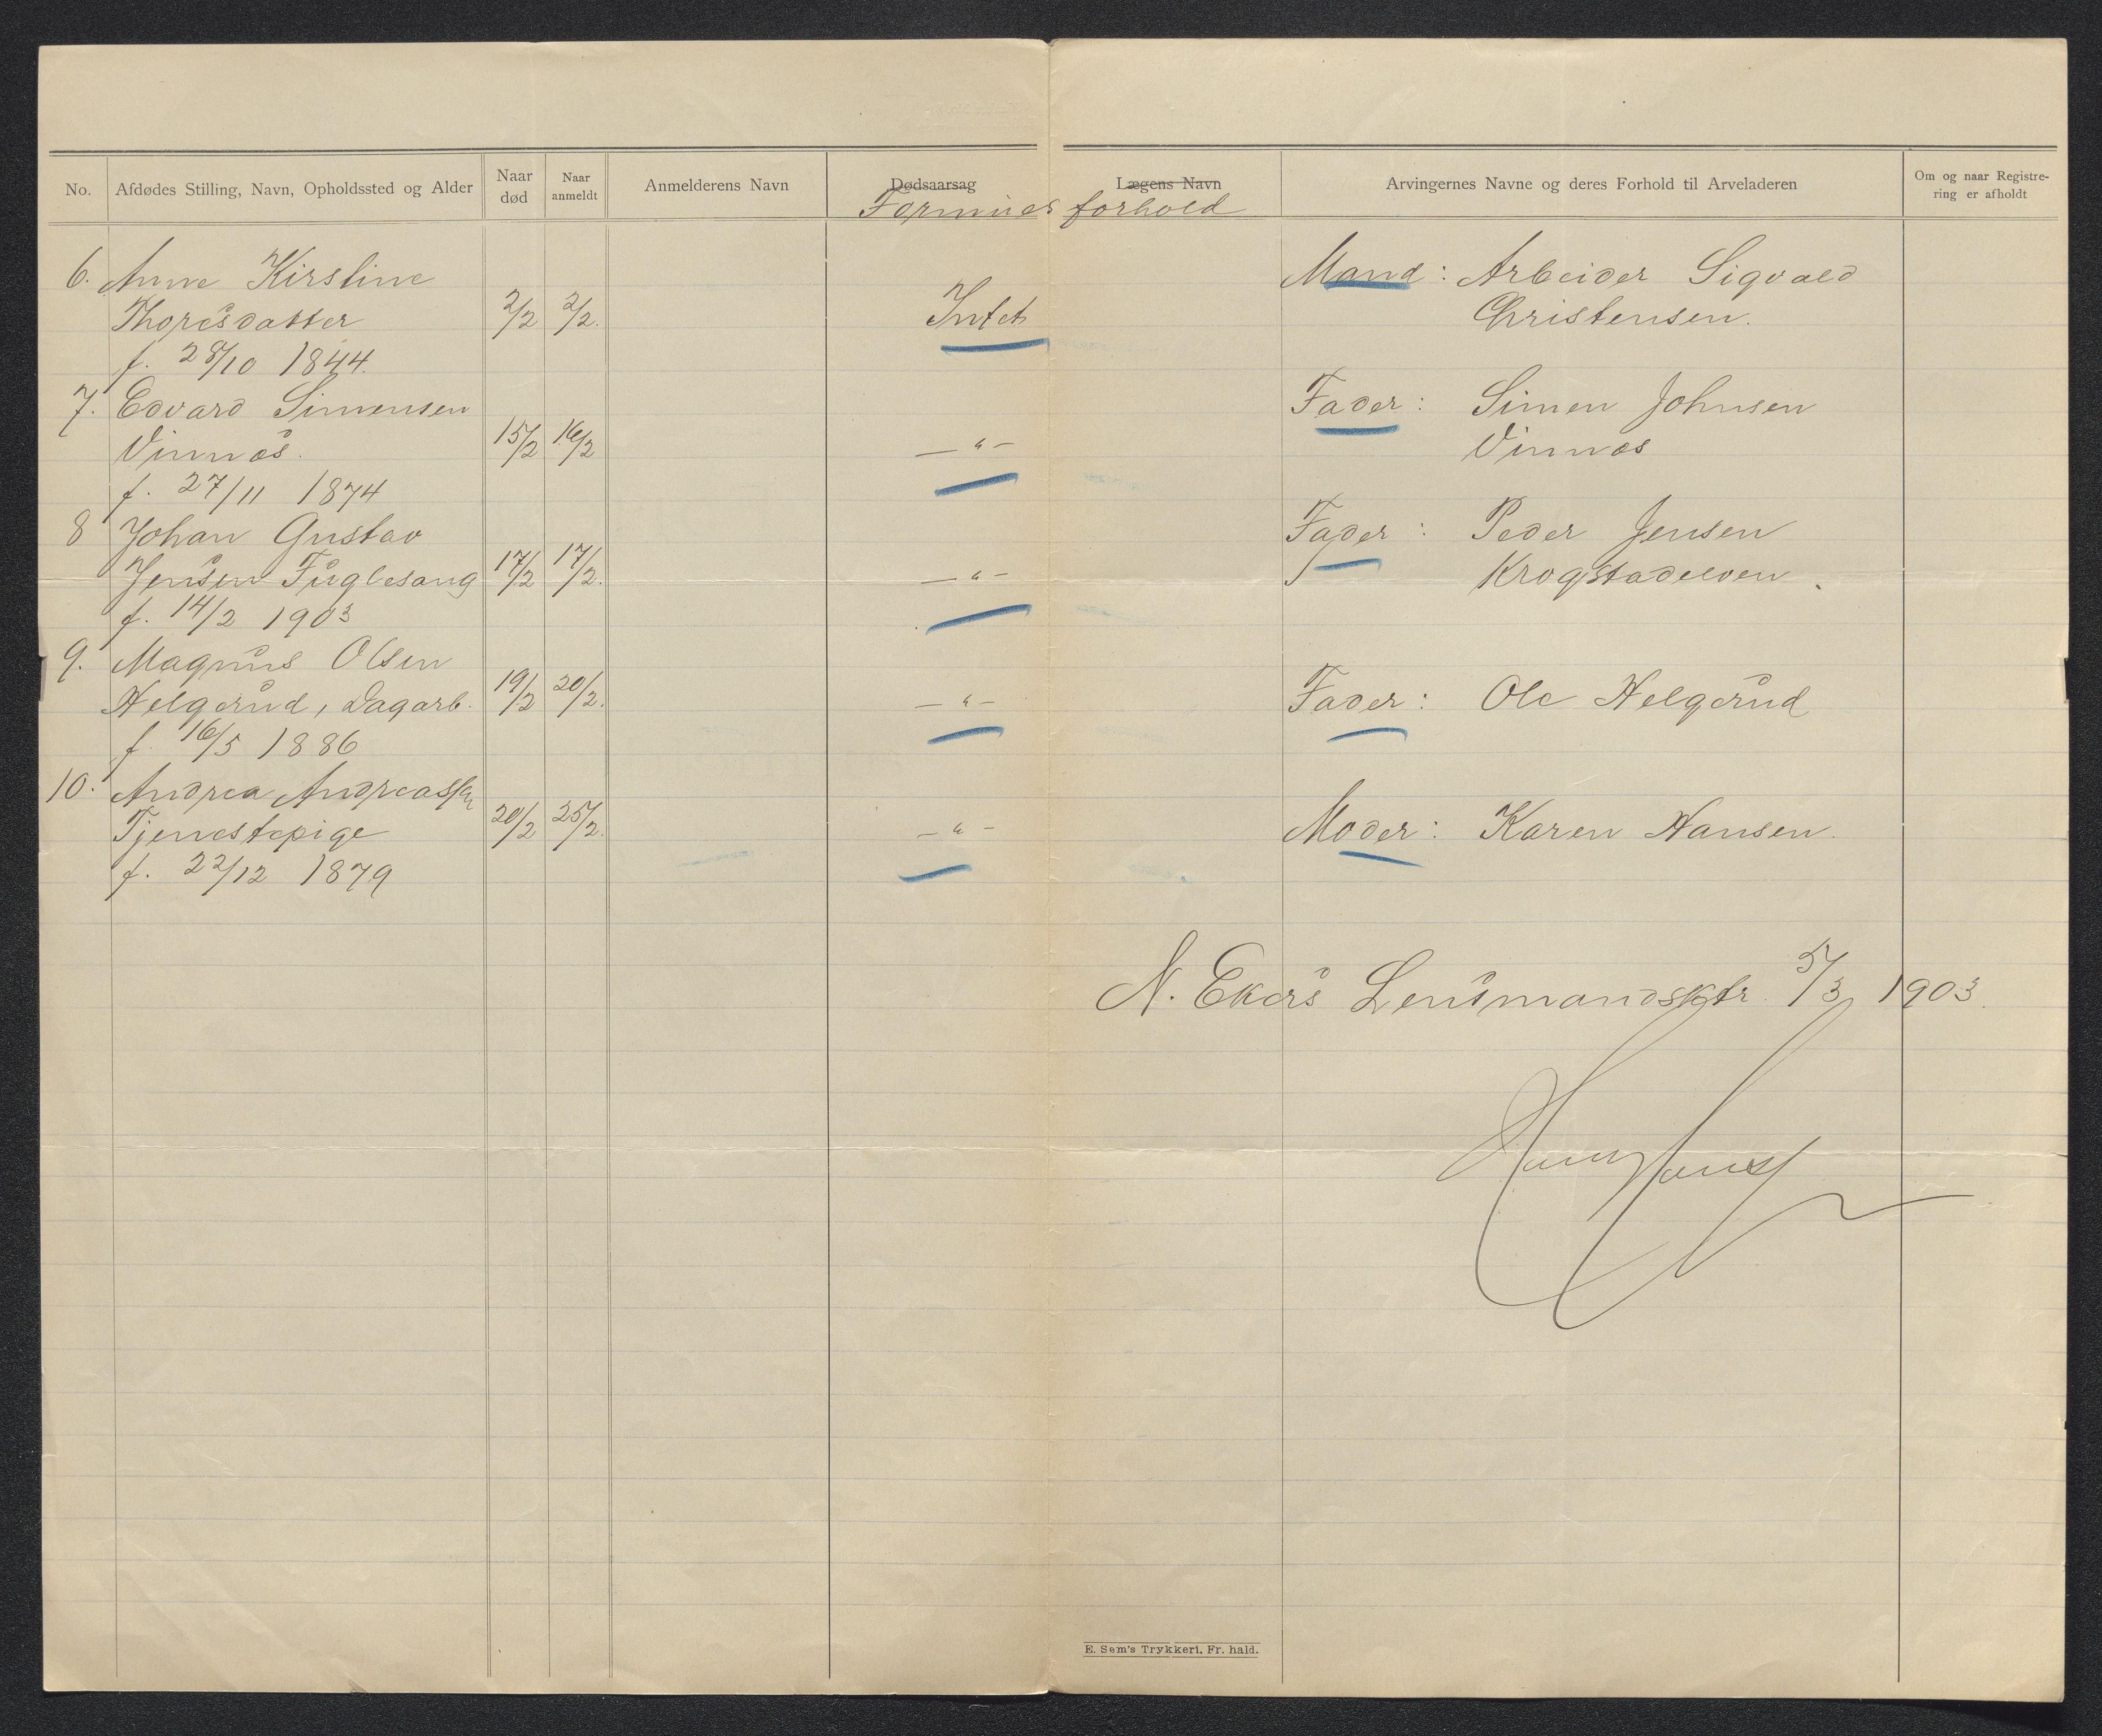 No. Afdødes Stilling, Navn, Opholdssted og Alder Naar død Naar anmeldt Anmelderens Navn Dødsaarsag Lægens Navn Arvingernes Navne og deres Forhold til Arveladeren Om og naar Registrering er afholdt
Formues forhold
6. Anne Kirstine Mand: Arbeider Sigvald
Thoresdatter 2/2 2/2. Intet Christensen.
f. 28/10 1844.
7. Edvard Simensen Fader: Simen Johnsen
Vinnæs. 15/2 16/2 — " — Vinnæs
f. 27/11 1874
8 Johan Gustav Fader: Peder Jensen
Jensen Fuglesang 17/2 17/2. — " — Krogstadelven.
f. 14/2 1903
9. Magnus Olsen
Helgerud, Dagarb. 19/2 20/2. — " — Fader: Ole Helgerud
f. 16/5 1886
10. Andrea Andreassen
Tjenestepige 20/2 25/2. — " — Moder: Karen Hansen.
f. 22/12 1879
N. Ekers Lensmandsktr. 5/3 1903.
E. Sem's Trykkeri, Fr. hald.